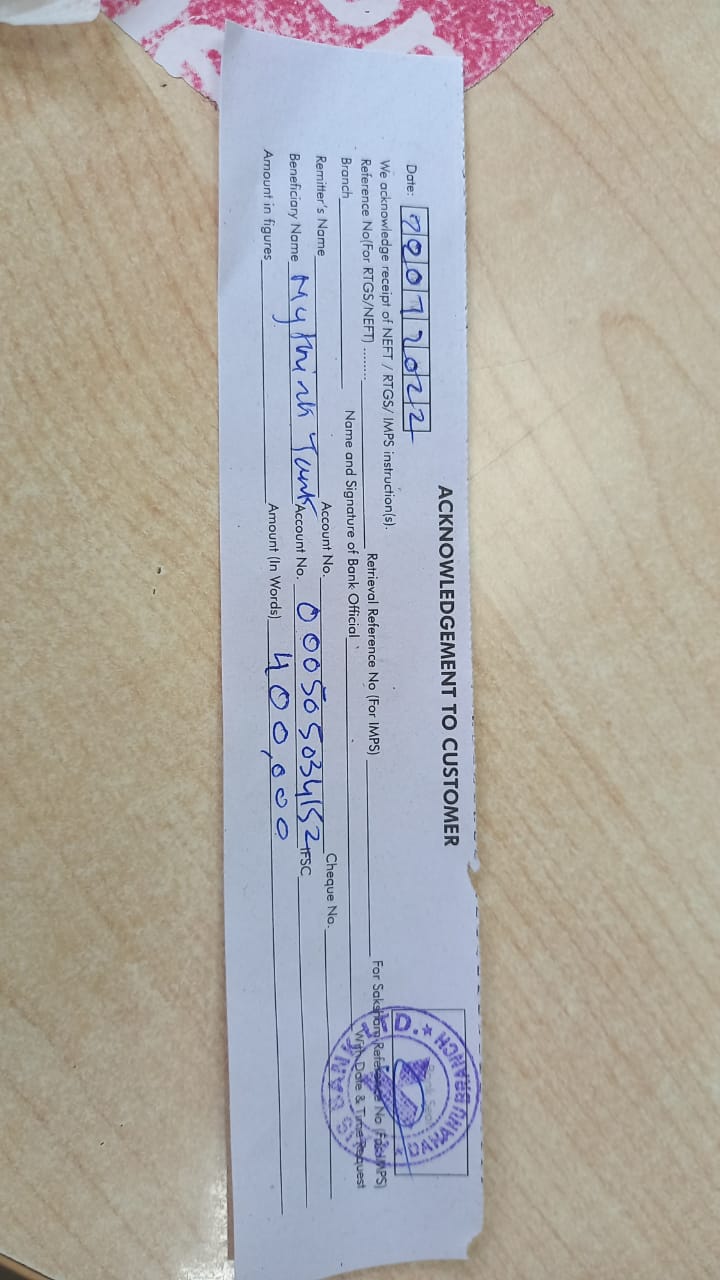 ACKNOWLEDGEMENT TO CUSTOMER
Date: 20072022
We acknowledge receipt of NEFT / RTGS/ IMPS instruction(s).
Reference No(For RTGS/NEFT) ........ Retrieval Reference No (For IMPS) For Saksham Reference No (For IMPS)
With Date & Time Request
Branch Name and Signature of Bank Official
Remitter's Name Account No. Cheque No.
Beneficiary Name My Think Tank Account No. 000505034152 IFSC
Amount in figures Amount (In Words) 400,000
DAHANU BRANCH
BANK